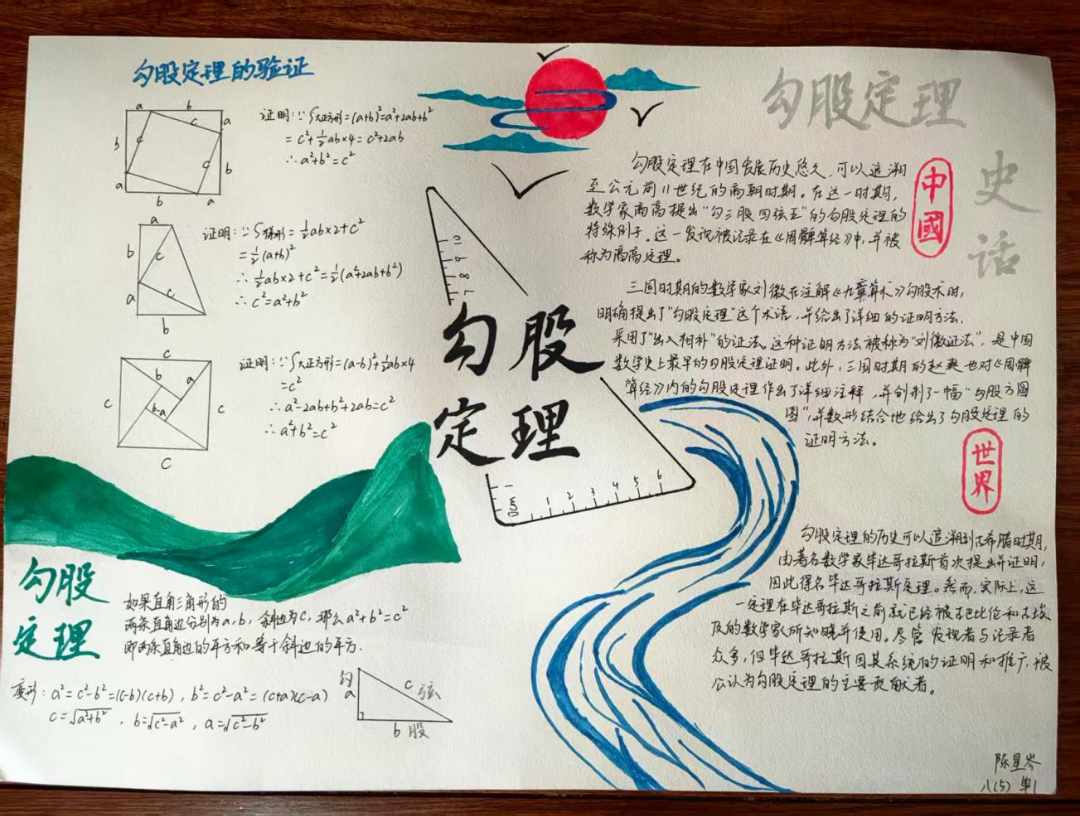 勾股定理的验证
a b
b c c a
a c b
b a
证明：∵S大正方形=(a+b)²=a²+2ab+b²
=c²+½ab×4=c²+2ab
∴a²+b²=c²
a
b c
a c
b
证明：∵S梯形=½ab×2+c²
=½(a+b)²
∴½ab×2+c²=½(a²+2ab+b²)
∴c²=a²+b²
c
b a
c b-a c
c
证明：∵S大正方形=(a-b)²+½ab×4
=c²
∴a²-2ab+b²+2ab=c²
∴a²+b²=c²
勾股
定理
如果直角三角形的
两条直角边分别为a，b，斜边为c，那么a²+b²=c²
即两条直角边的平方和等于斜边的平方．
变形：a²=c²-b²=(c-b)(c+b)，b²=c²-a²=(c+a)(c-a)
c=√a²+b²，b=√c²-a²，a=√c²-b²
勾
a c 弦
b 股
10
9
8
7
勾股
定理
cm 1 2 3 4 5 6
勾股定理
史
话
勾股定理在中国发展历史悠久，可以追溯
至公元前11世纪的商朝时期。在这一时期，
数学家商高提出“勾三股四弦五”的勾股定理的
特殊例子。这一发现被记录在《周髀算经》中，并被
称为商高定理。
中國
三国时期的数学家刘徽在注解《九章算术》勾股术时，
明确提出了“勾股定理”这个术语，并给出了详细的证明方法．
采用了“出入相补”的证法，这种证明方法被称为“刘徽证法”，是中国
数学史上最早的勾股定理证明。此外，三国时期的赵爽也对《周髀
算经》内的勾股定理作出了详细注释，并创制了一幅“勾股方圆
图”，并数形结合地给出了勾股定理的
证明方法。
世界
勾股定理的历史可以追溯到古希腊时期，
由著名数学家毕达哥拉斯首次提出并证明，
因此得名毕达哥拉斯定理。然而，实际上，这
一定理在毕达哥拉斯之前就已经被古巴比伦和古埃
及的数学家所知晓并使用。尽管发现者与记录者
众多，但毕达哥拉斯因其系统的证明和推广被
公认为勾股定理的主要贡献者。
陈星岑
八(5)